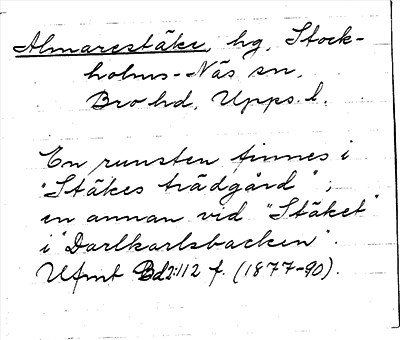 Almarestäke, hg, Stock-
holms-Näs sn,
Bro hd, Upps. l.
En runsten finnes i
"Stäkes trädgård";
en annan vid "Stäket"
i "Darlkarlsbacken".
Ufmt Bd2:112 f. (1877-90).